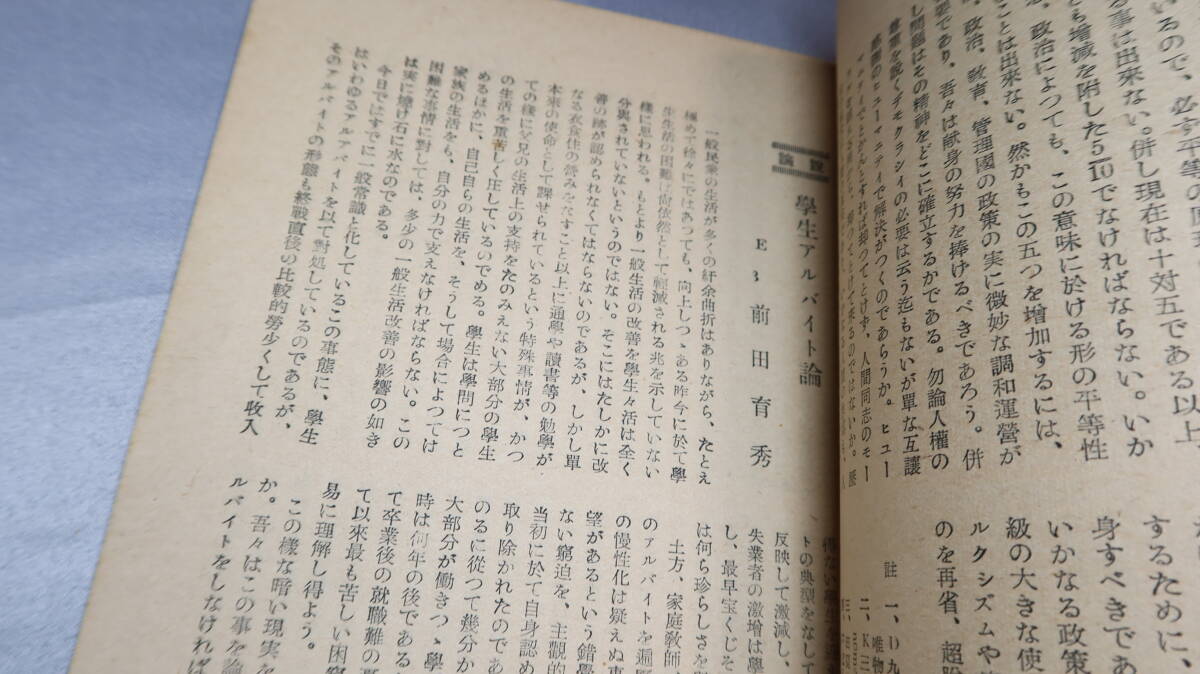 いるので、必ず平等の
る事は出来ない。併し現在は十対五である以上
とも増減を附した5/10でなければならない。いか
、政治によつても、この意味に於ける形の平等性
ことは出来ない。然かもこの五つを増加するには、
、政治、教育、管理國の政策の実に微妙な調和運営が
要であり、吾々は献身の努力を捧げるべきであろう。併
し問題はその精神をどこに確立するかである。勿論人權の
尊重を説くデモクラシイの必要は云う迄もないが單な互讓
のヒューマニティで解決がつくのであらうか。ヒュー
マニティでとかんとすれば却つてとけず、人間同志のモー
するために、
身すべきであ
いかなる政策
級の大きな使
ルクシズムや
のを再省、超
註 一、D九
唯物
二、K三
論説
學生アルバイト論
E3 前田育秀
一般民衆の生活が多くの紆余曲折はありながら、たとえ
極めて徐々にではあつても、向上しつゝある昨今に於て學
生生活の困難は尚依然として輕減される兆を示していない
樣に思われる。もとより一般生活の改善を學生々活は全く
分與されていないというのではない。そこにはたしかに改
善の跡が認められなくてはならないのであるが、しかし單
なる衣食住の營みをなすこと以上に通學や讀書等の勉學が
本來の使命として課せられているという特殊事情が、かつ
ての樣に父兄の生活上の支持をたのみえない大部分の學生
の生活を重苦しく圧しているのである。學生は學問につと
めるほかに、自己自らの生活を、そうして場合によつては
家族の生活をも、自分の力で支えなければならない。この
困難な事情に対しては、多少の一般生活改善の影響の如き
は実に燒け石に水なのである。
今日ではすでに一般常識と化しているこの事態に、學生
はいわゆるアルアバイトを以て對処しているのであるが、
そのアルバイトの形態も終戰直後の比較的勞少くして收入
得ない學生を
トの典型をなして
反映して激減し、
失業者の激增は學
し、最早宝くじそ
は何ら珍らしさを
土方、家庭教師
のアルバイトを遍
の慢性化は疑えぬ
望があるという錯
ない窮迫を、主觀的
当初に於て自身認め
取り除かれたのであ
のるに從つて幾分か
大部分が働きつゝ學
時は何年の後である
て卒業後の就職難の
て以來最も苦しい困窮
易に理解し得よう。
この樣な暗い現実を
か。吾々はこの事を論
ルバイトをしなければ